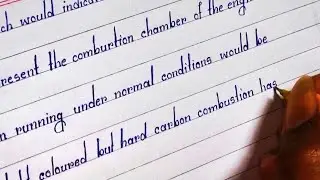 ch would indica
resent the comburtion chamber of the eng
n running under normal conditions would be
coloured but hard carbon combustion has